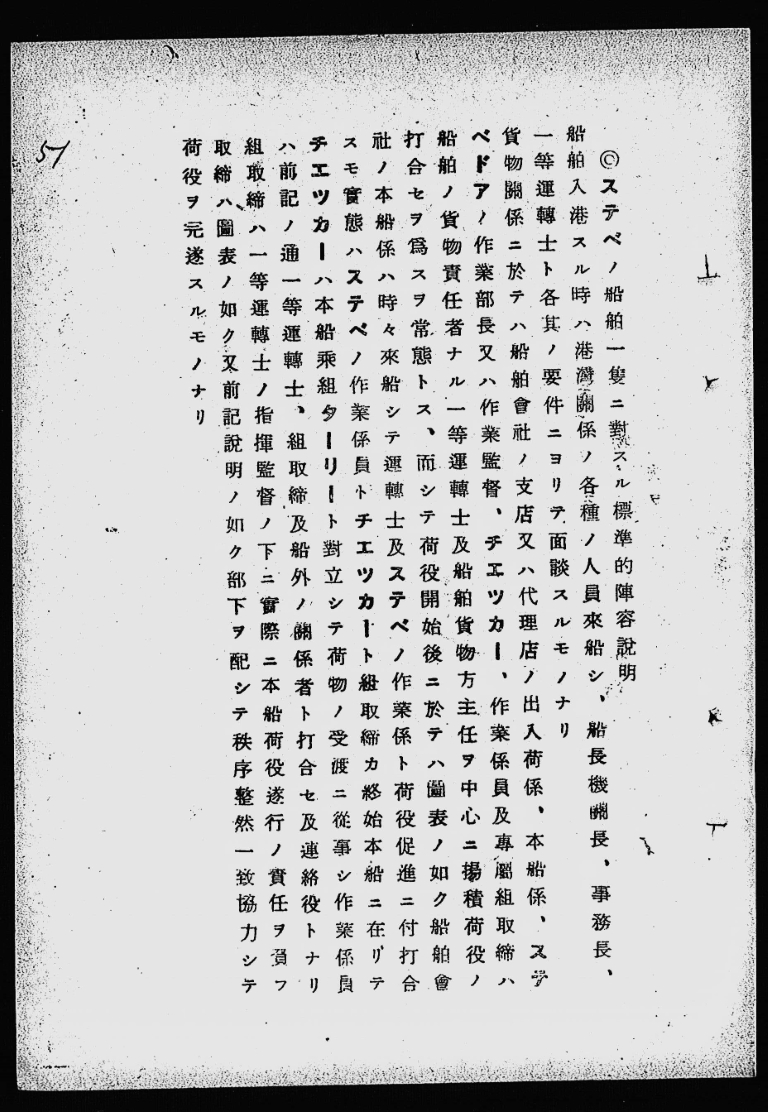 ◎ステベノ船舶一隻ニ對スル標準的陣容說明
船舶入港スル時ハ港灣關係ノ各種ノ人員來船シ、船長機關長、事務長、
一等運轉士ト各其ノ要件ニヨリテ面談スルモノナリ
貨物關係ニ於テハ船舶會社ノ支店又ハ代理店ノ出入荷係、本船係、ステ
ベドアノ作業部長又ハ作業監督、チエツカー、作業係員及專屬組取締ハ
船舶ノ貨物責任者ナル一等運轉士及船舶貨物方主任ヲ中心ニ揚積荷役ノ
打合セヲ爲スヲ常態トス、而シテ荷役開始後ニ於テハ圖表ノ如ク船舶會
社ノ本船係ハ時々來船シテ運轉士及ステベノ作業係ト荷役促進ニ付打合
スモ實態ハステベノ作業係員トチエツカート組取締カ終始本船ニ在リテ
チエツカーハ本船乘組ターリート對立シテ荷物ノ受渡ニ從事シ作業係員
ハ前記ノ通一等運轉士、組取締及船外ノ關係者ト打合セ及連絡役トナリ
組取締ハ一等運轉士ノ指揮監督ノ下ニ實際ニ本船荷役遂行ノ責任ヲ負フ
取締ハ圖表ノ如ク又前記說明ノ如ク部下ヲ配シテ秩序整然一致協力シテ
荷役ヲ完遂スルモノナリ
51